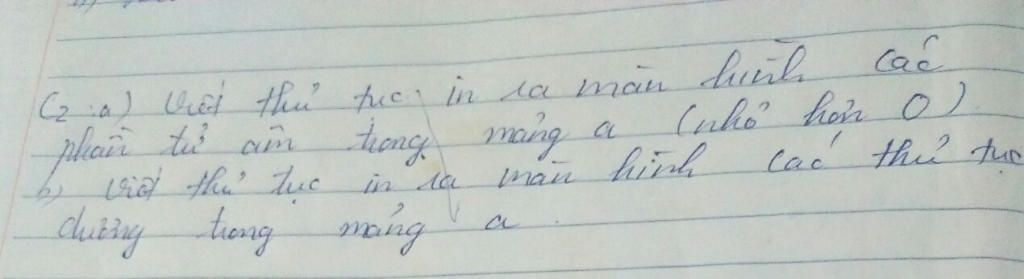 C2: a) Viết thủ tục in ra màn hình các
phần tử âm trong mảng a (nhỏ hơn 0)
b) Viết thủ tục in ra màn hình các thủ tục
dương trong mảng a.